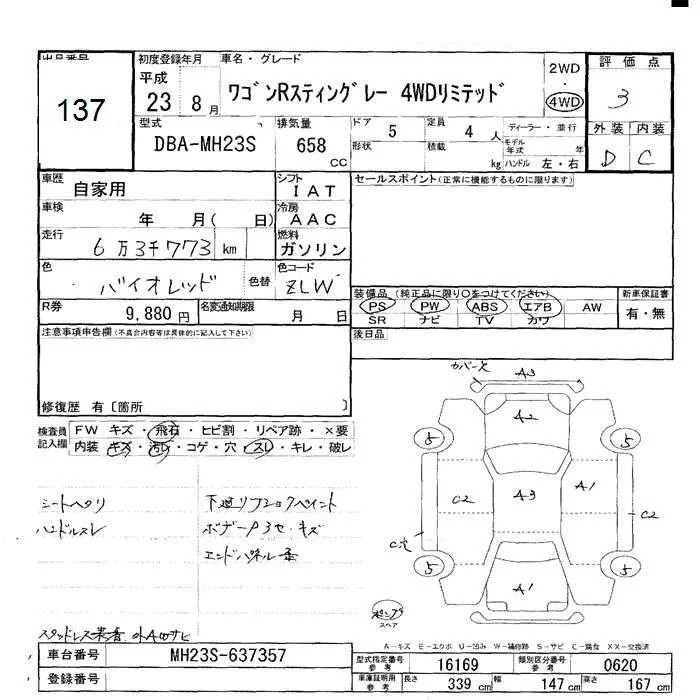 出品番号 初度登録年月 車名・グレード 2WD 評価点
137 平成 23 8月 ワゴンRスティングレー 4WDリミテッド ・ 4WD 3
型式 排気量 ドア 5 定員 4人 ディーラー・並行 外装 内装
DBA-MH23S 658 CC 形状 積載 kg モデル年式 年 ハンドル 左・右 D C
車歴 自家用 シフト IAT セールスポイント(正常に機能するものに限ります)
車検 年 月( 日) 冷房 AAC
走行 6万3千773 km 燃料 ガソリン
色 バイオレッド 色替 色コード ZLW
装備品(純正品に限り○をつけてください) 新車保証書
R券 9,880円 名変通知期限 月 日 PS PW ABS エアB AW 有・無
SR ナビ TV カワ
注意事項申告欄(不具合内容等は具体的に記入して下さい) 後日品
修復歴 有〔箇所 〕
検査員記入欄 FW キズ・飛石・ヒビ割・リペア跡・×要
内装 キズ・汚レ・コゲ・穴・スレ・キレ・破レ
カバー欠 A3
A2
5 5
C2 A3 A1 C2
C穴
5 5
A1
シートヘタリ 下廻リ
ハンドルスレ キズ
スペア
車台番号 MH23S-637357
登録番号
A-キズ E-エクボ U-凹み W-補修跡 S-サビ C-腐食 XX-交換済
型式指定番号 参考 16169 類別区分番号 参考 0620
車庫証明用 参考 長さ 339cm 幅 147cm 高さ 167cm